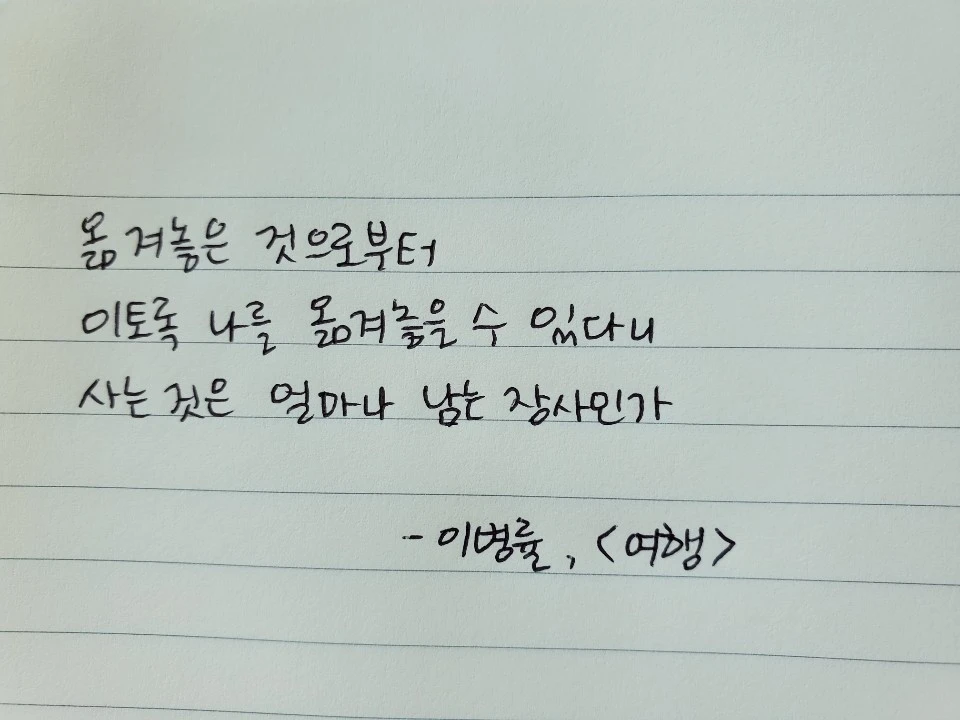 옮겨놓은 것으로부터
이토록 나를 옮겨놓을 수 있다니
사는 것은 얼마나 남는 장사인가
- 이병률, <여행>